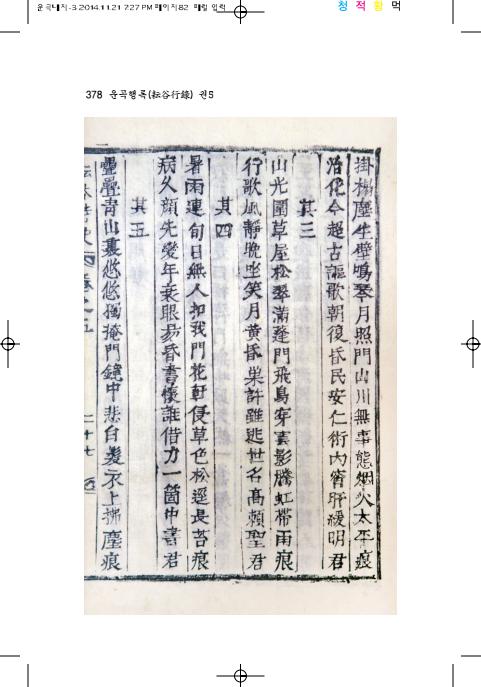 운곡대지-3 2014.11.21 7:27 PM 페이지82 매킬 입력
청 적 황 먹
378 운곡행록(耘谷行錄) 권5
掛榻塵生壁鳴琴月照門山川無事態烟火太平痕
治化今超古謳歌朝復昏民安仁術內宵旰緩明君
其三
山光圍草屋松翠滿蓬門飛鳥穿雲影騰虹帶雨痕
行歌風靜晩坐笑月黃昏巢許雖逃世名高賴聖君
其四
暑雨連旬日無人扣我門花軒侵草色松逕長苔痕
病久顔先變年衰眼易昏書懷誰借力一箇中書君
其五
疊疊靑山裏悠悠獨掩門鏡中悲白髮衣上拂塵痕
卷之五 二十七